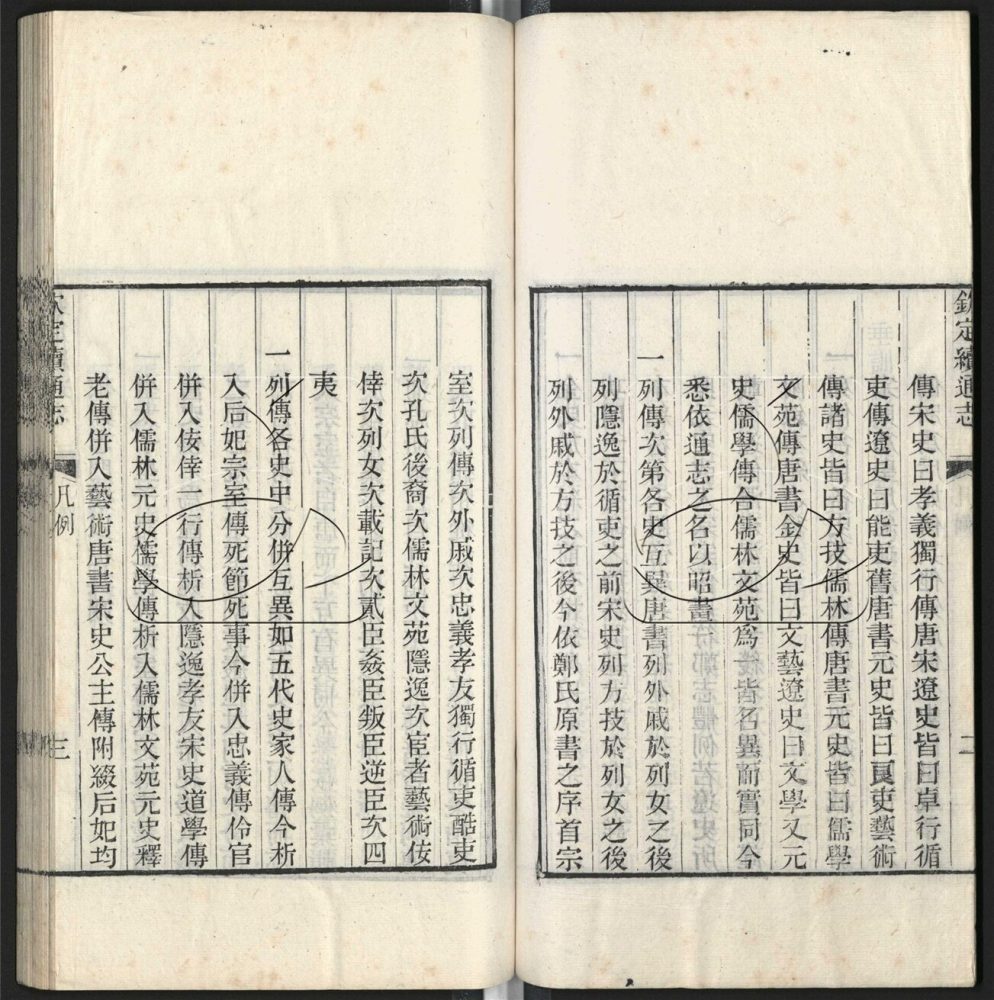 欽定續通志
二
傳宋史曰孝義獨行傳唐宋遼史皆曰卓行循
吏傳遼史曰能吏舊唐書元史皆曰良吏藝術
傳諸史皆曰方技儒林傳唐書元史皆曰儒學
文苑傳唐書金史皆曰文藝遼史曰文學又元
史儒學傳合儒林文苑爲一皆名異而實同今
悉依通志之名以昭畫一
一列傳次第各史互異唐書列外戚於列女之後
列隱逸於循吏之前宋史列方技於列女之後
列外戚於方技之後今依鄭氏原書之序首宗
室次列傳次外戚次忠義孝友獨行循吏酷吏
次孔氏後裔次儒林文苑隱逸次宦者藝術佞
倖次列女次載記次貳臣姦臣叛臣逆臣次四
夷
一列傳各史中分併互異如五代史家人傳今析
入后妃宗室傳死節死事今併入忠義傳伶官
併入佞倖一行傳析入隱逸孝友宋史道學傳
併入儒林元史儒學傳析入儒林文苑元史釋
老傳併入藝術唐書宋史公主傳附綴后妃均
欽定續通志
凡例
三